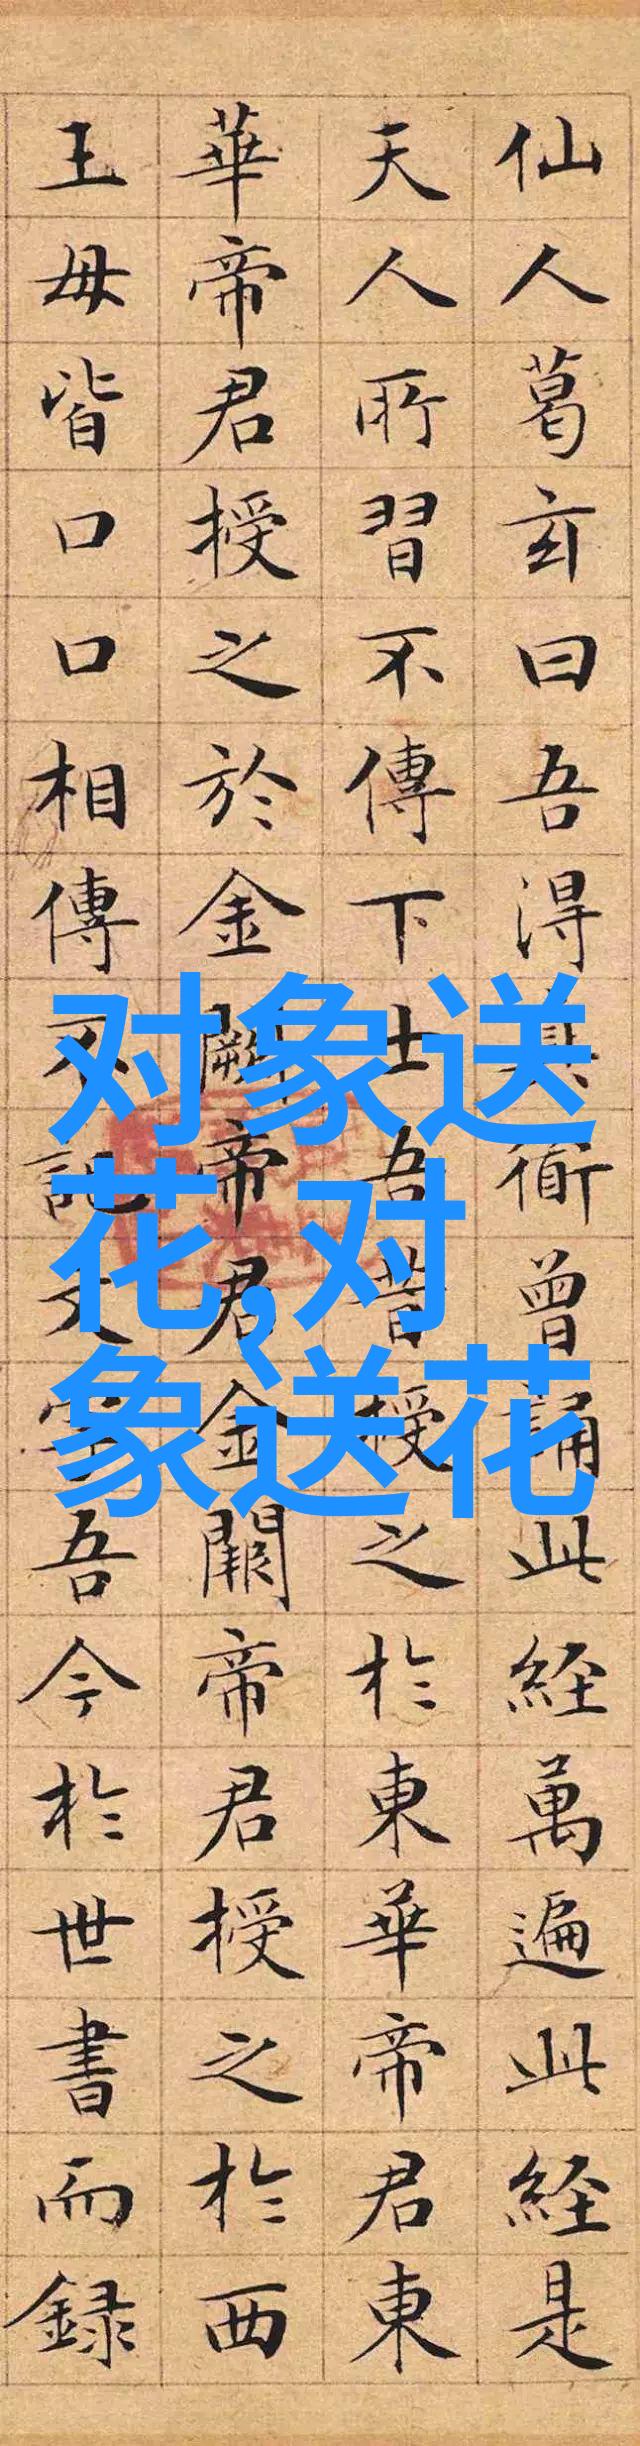 仙人葛玄曰吾得真術曾誦此經萬遍此經是
天人所習不傳下士吾昔授之於東華帝君東
華帝君授之於金闕帝君金闕帝君授之於西
王母皆口口相傳不記文字吾今於世書而録
对象送
花,对
象送花